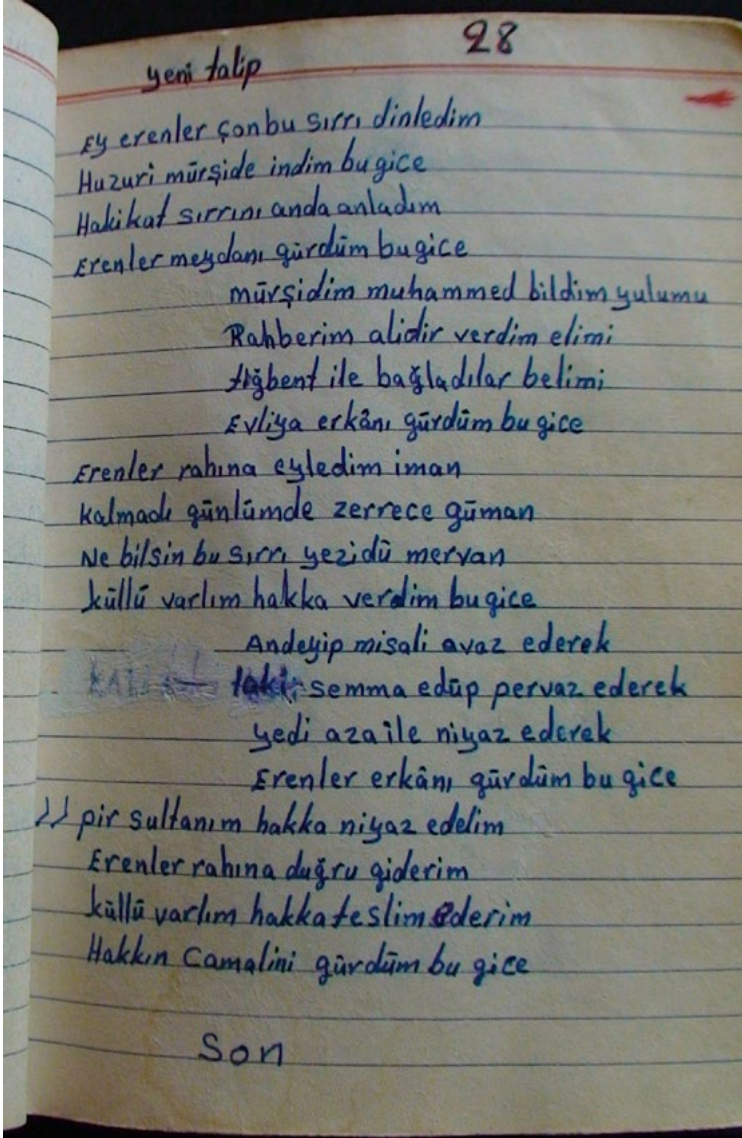 28
yeni talip
Ey erenler çonbu sırrı dinledim
Huzuri mürşide indim bu gice
Hakikat sırrını anda anladım
Erenler meydanı gürdüm bu gice
mürşidim muhammed bildim yulumu
Rahberim alidir verdim elimi
tiğbent ile bağladılar belimi
Evliya erkânı gürdüm bu gice
Erenler rahına eyledim iman
kalmadı günlümde zerrece güman
Ne bilsin bu sırrı yezidü mervan
küllü varlım hakka verdim bu gice
Andeyip misali avaz ederek
semma edüp pervaz ederek
yedi aza ile niyaz ederek
Erenler erkânı gürdüm bu gice
pir sultanım hakka niyaz edelim
Erenler rahına duğru giderim
küllü varlım hakka teslim ederim
Hakkın Camalini gürdüm bu gice
Son